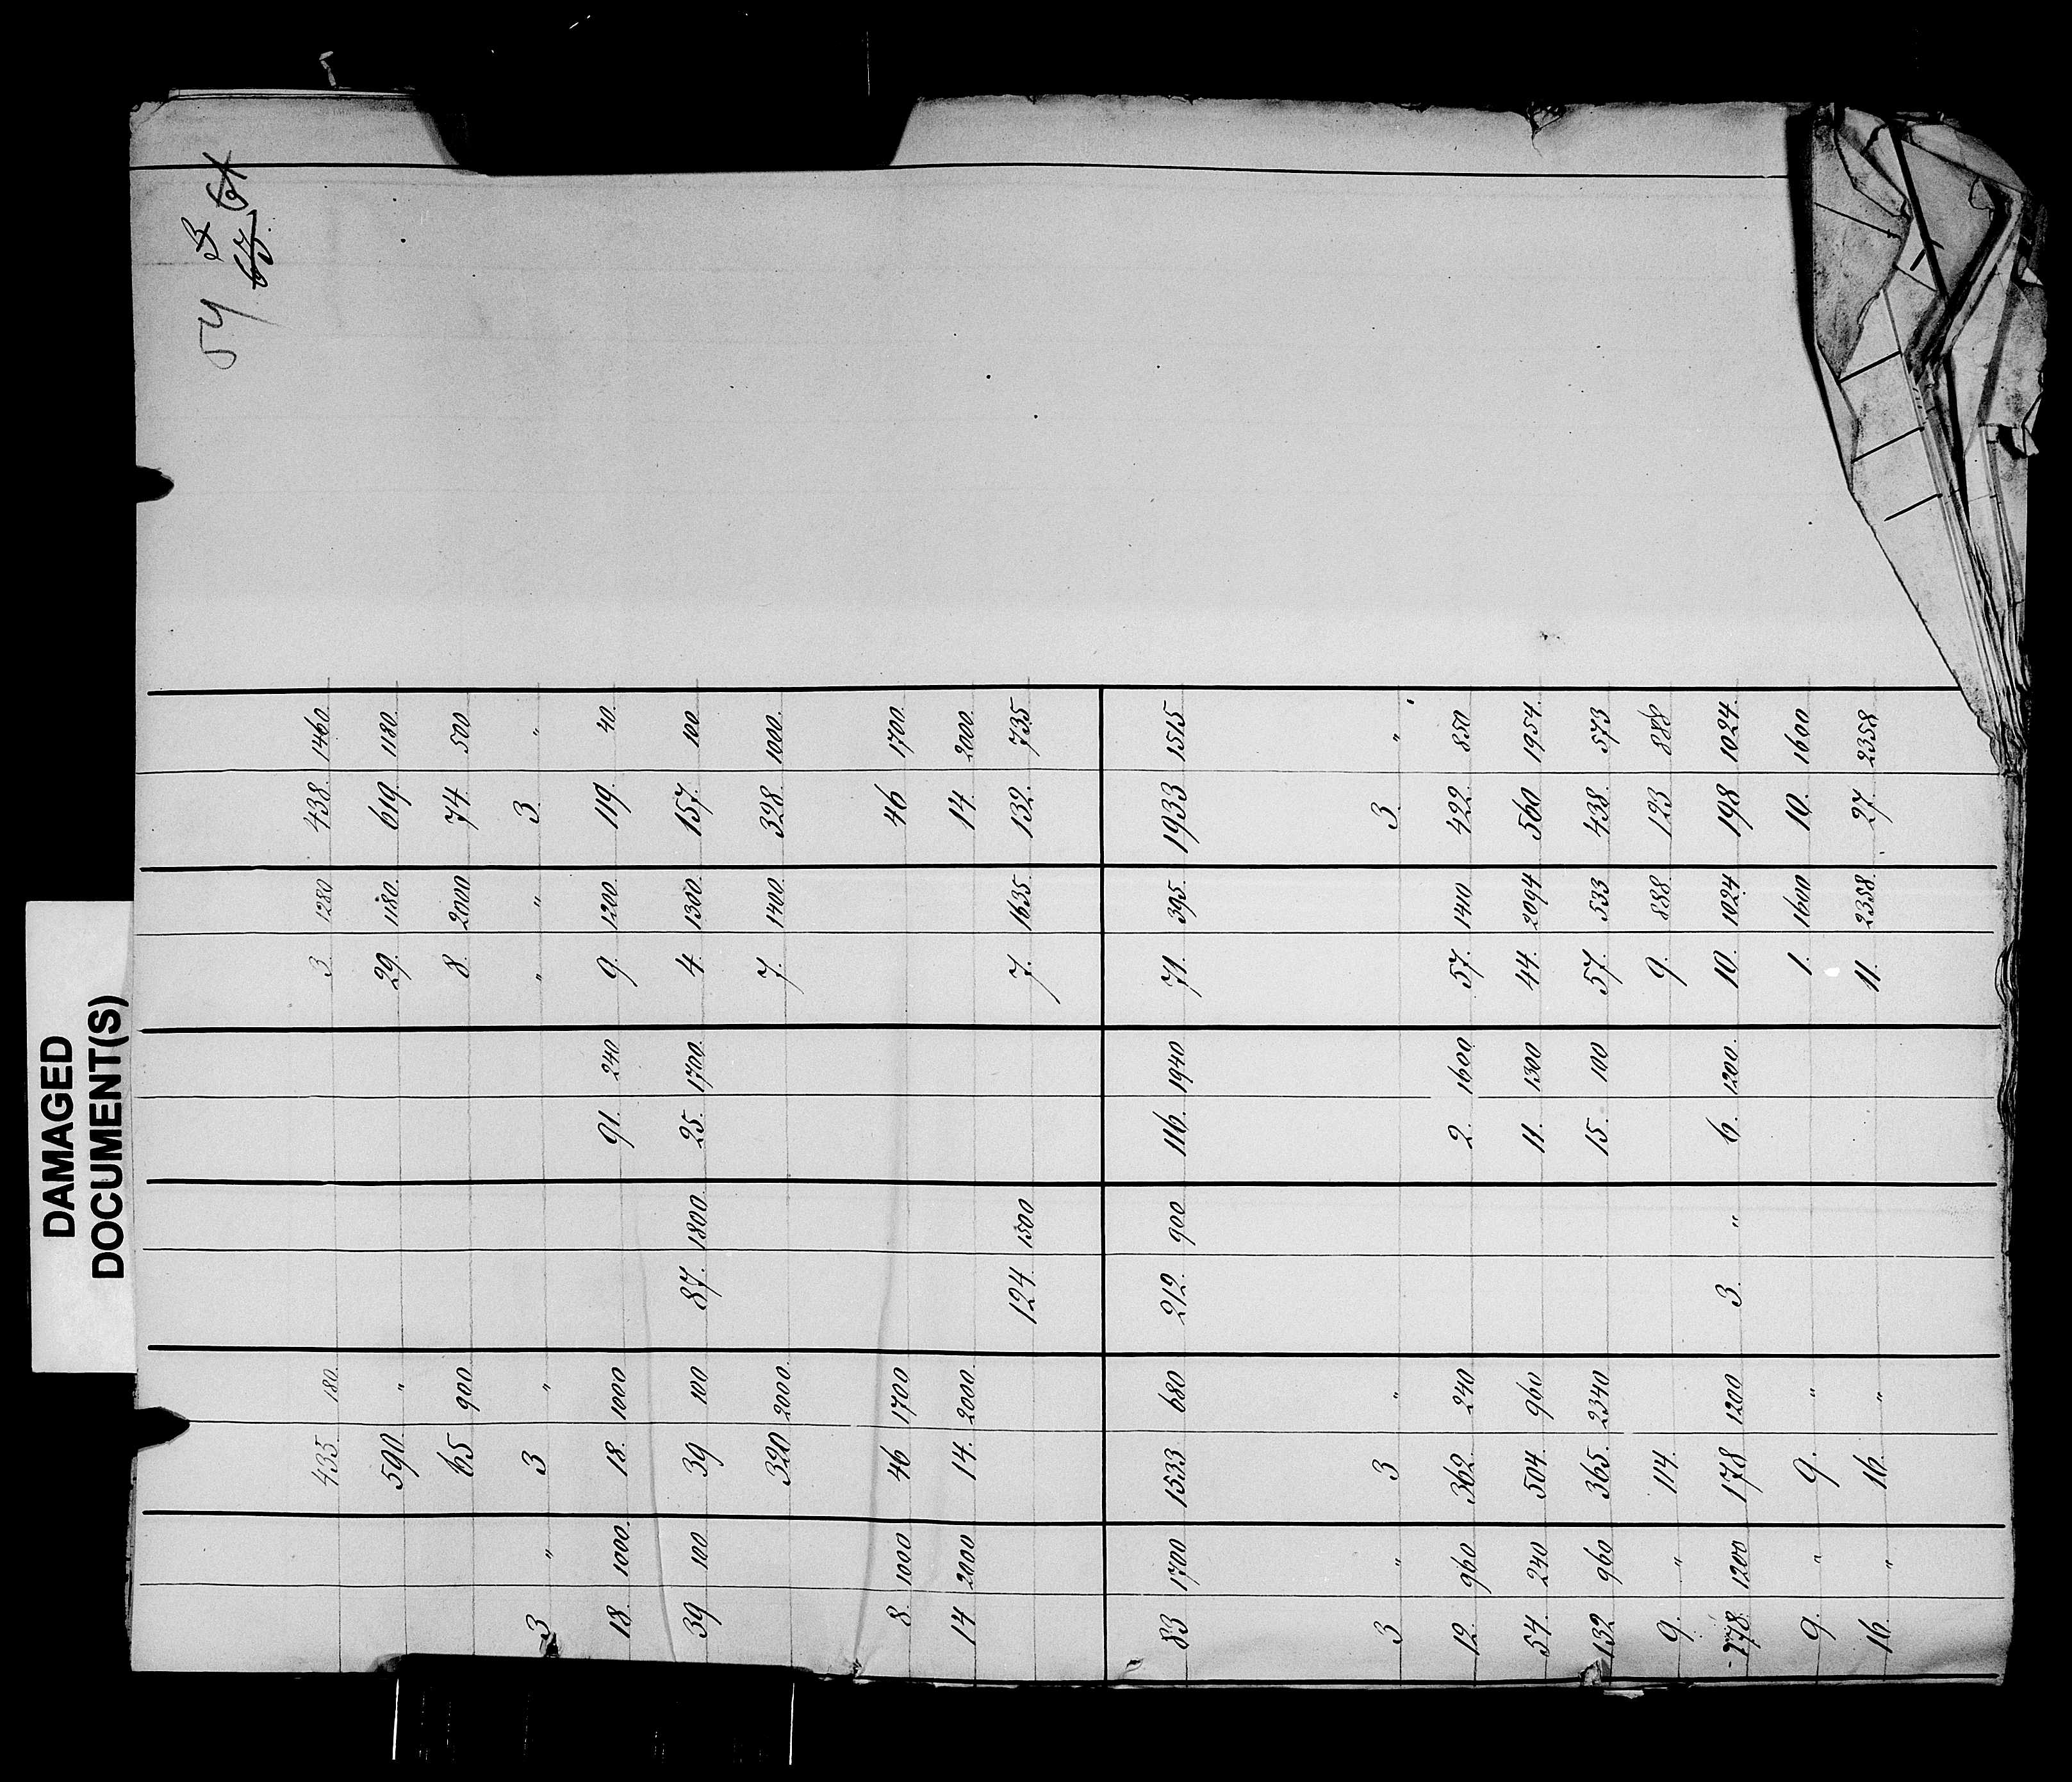 DAMAGED
DOCUMENT(S)
57
67. 64
435. 180. 3. 1280 438. 1460.
590. " 29. 1180. 619. 1180.
65. 900 8. 2000 74. 500
3. " 3 " " " 3. "
18. 1000. 18. 1000 91. 240 9. 1200. 119. 40.
39 100 39 100 87. 1800. 25. 1700. 4. 1300. 157. 100
320 2000. 7. 140. 328. 1000.
8. 1000 46 1700 46 1700.
14 2000 14. 2000. 14. 2000.
124. 1500 7. 1635. 132. 735
83 1700 1533 680 212. 900 116. 1940 71. 395. 1933 1515
3 " 3 " 3. "
12. 960 362. 240 2. 1600 57. 1410 422. 850
54. 240 504. 960 11. 1300 44. 2094 560 1954.
132 960 365. 2340 15. 100 57. 533 438. 573
9. " 114. 9. 888 123 888
178. 1200 178 1200 3. " 6. 1200. 10. 1024 198 1024
9. " 9. " 1. 1600 10. 1600
16. " 16. " 11. 2358. 27. 2358.